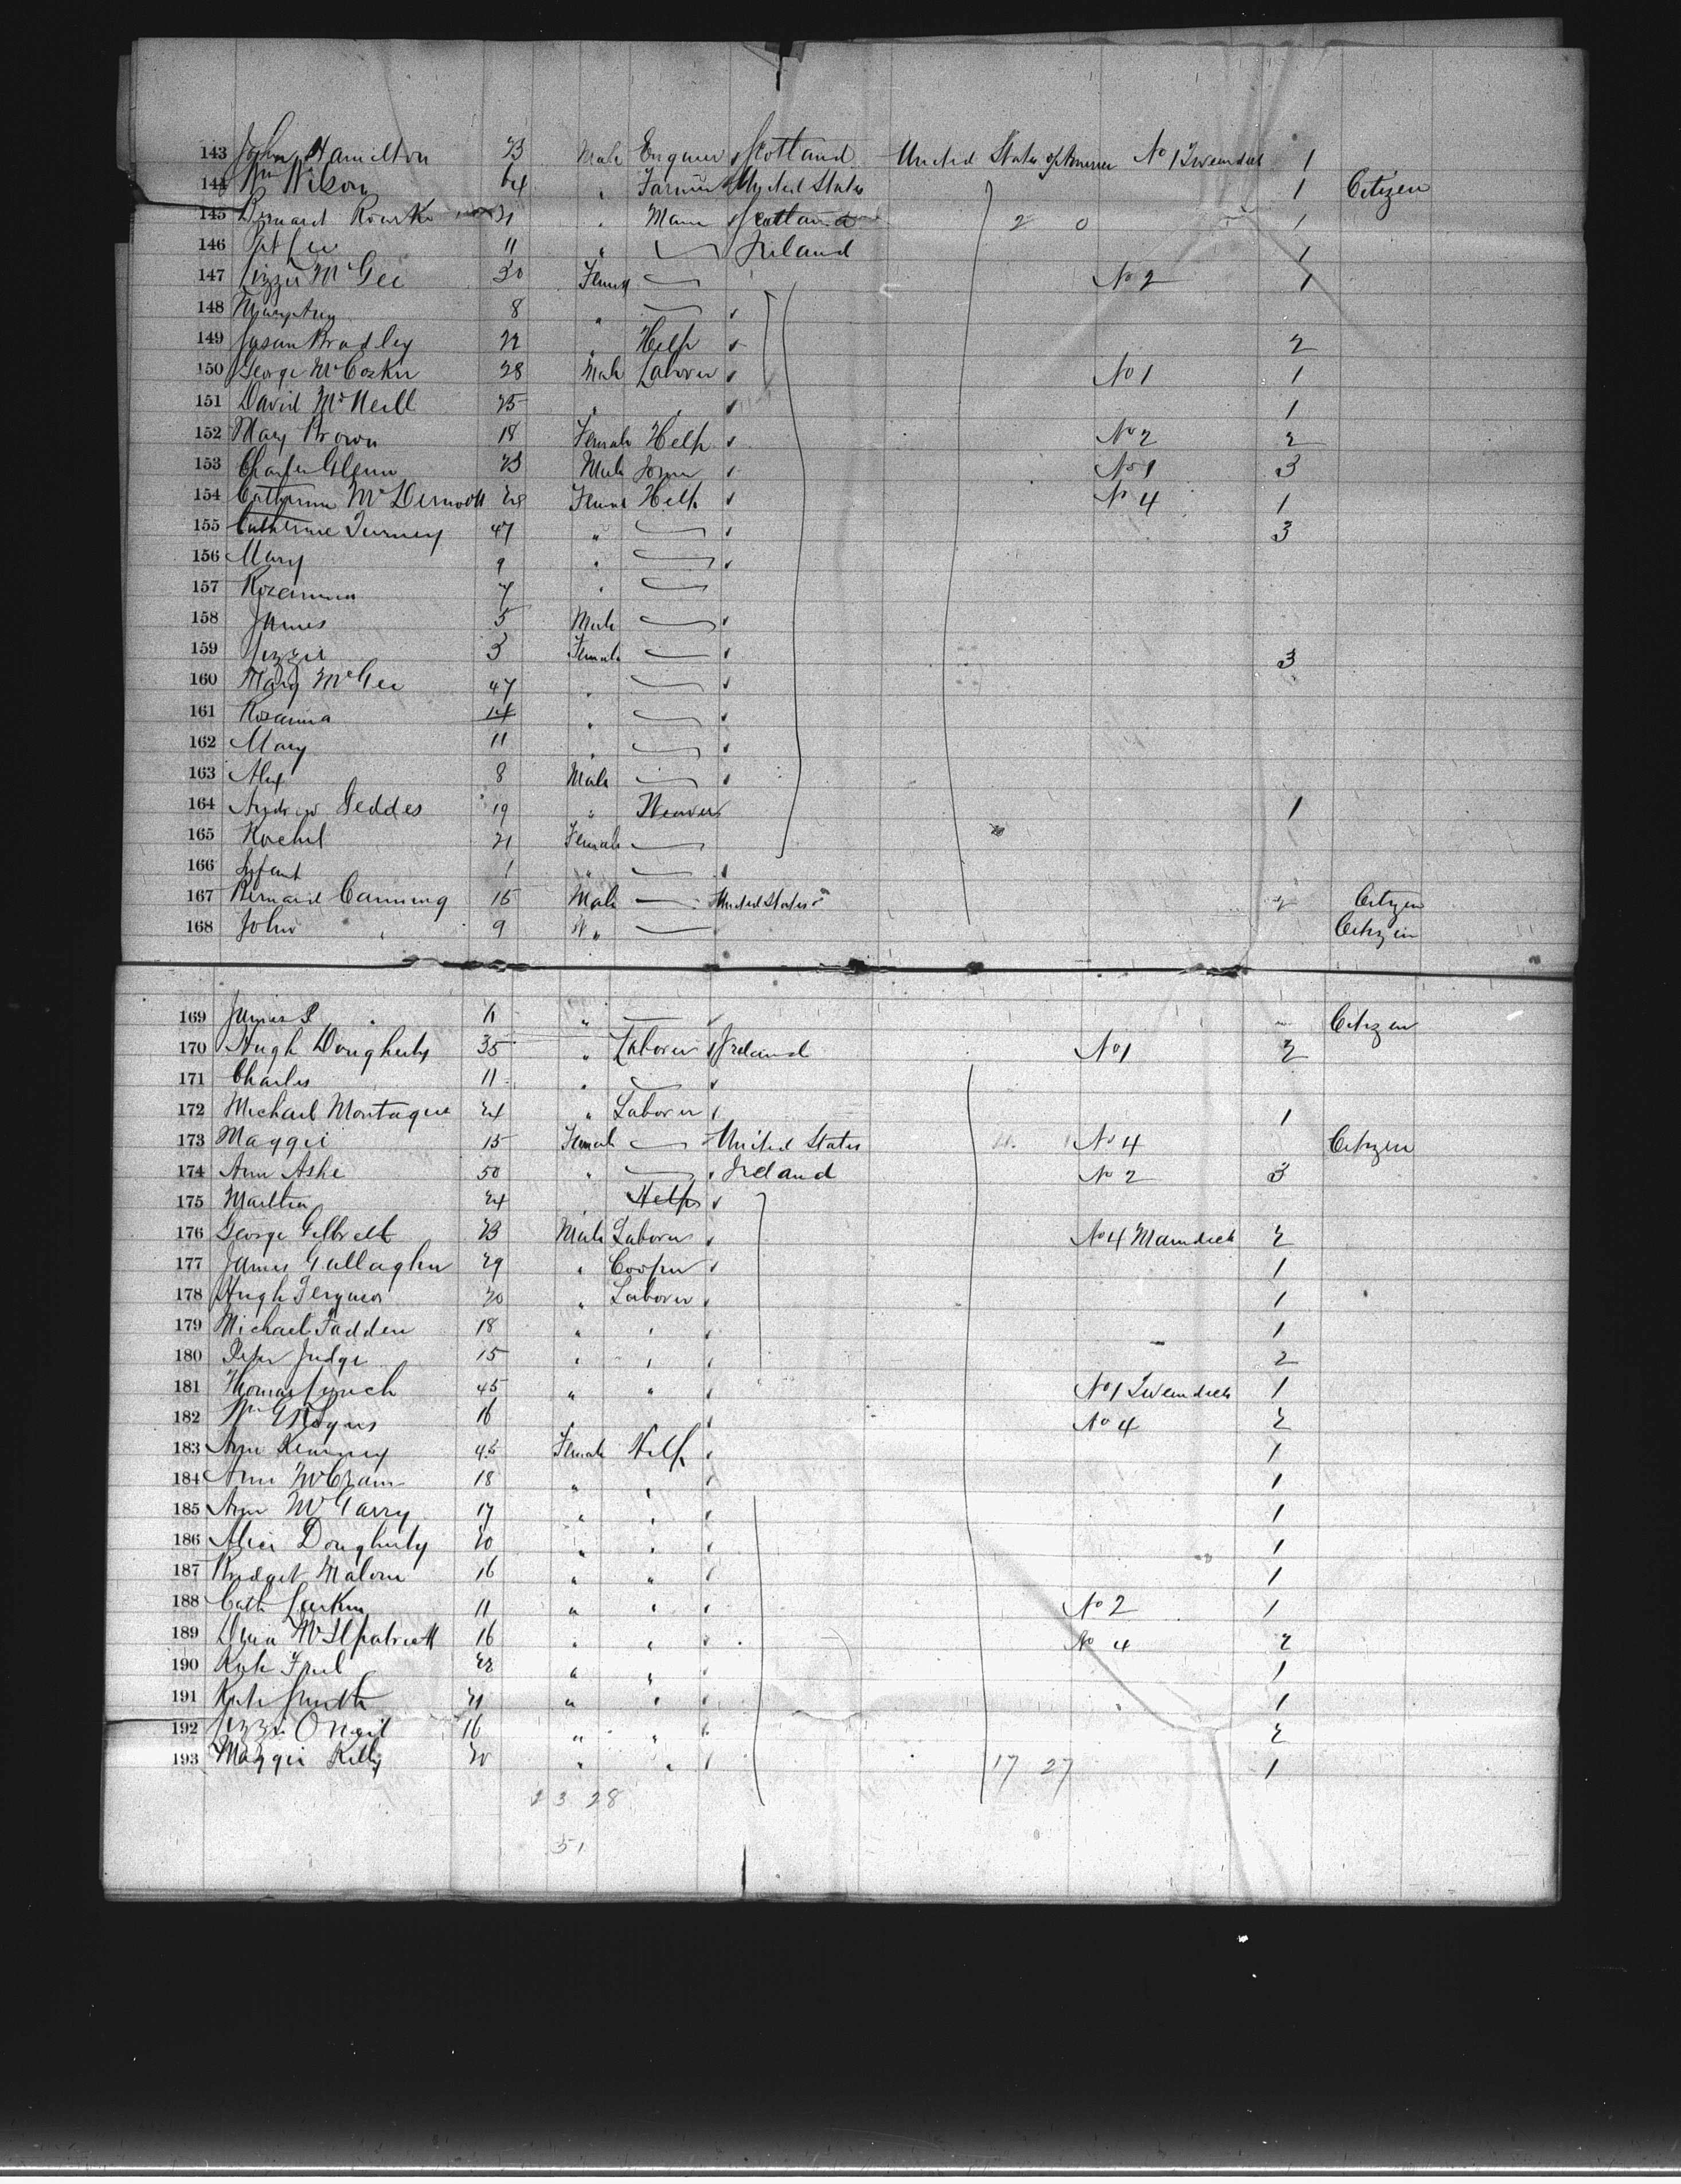 143 John Hamilton 23 Male Scotland United States of America No 1 1
144 Wm Wilson 64 " Farmer United States 1 Citizen
145 Bernard Rourke 21 " Scotland 2 0 1
146 Pat 11 " Ireland 1
147 Lizzie McGee 30 No 2 1
148 Mary Ann 8 "
149 Susan Bradley 22 " Help 2
150 George McCosker 28 Male Laborer No 1 1
151 David McNeill 25 " " 1
152 Mary Brown 18 Female Help No 2 2
153 Charles Glenn 23 Male No 1 3
154 Catherine McDermott 28 Help No 4 1
155 Catherine 47 " 3
156 Mary 9 "
157 Rozanna 7 "
158 James 5 Male
159 Lizzie 3 Female 3
160 Mary McGee 47 "
161 Rosanna 14 "
162 Mary 11 "
163 Alex 8 Male
164 Andrew Geddes 19 " Weaver 1
165 Rachel 21 Female
166 Infant 1 "
167 Bernard Canning 15 Male United States 2 Citizen
168 John " 9 " Citizen
169 James P " 11 " Citizen
170 Hugh Dougherty 35 " Laborer Ireland No 1 2
171 Charles 11 "
172 Michael Montague 24 " Laborer 1
173 Maggie 15 Female United States No 4 Citizen
174 Ann Ashe 50 " Ireland No 2 3
175 Martha 24 " Help
176 George 23 Male Laborer No 4 2
177 James Gallagher 29 " Cooper 1
178 Hugh 20 " Laborer 1
179 Michael Fadden 18 " " 1
180 Peter Judge 15 " " 2
181 Thomas Lynch 45 " " No 1 1
182 Wm 16 " No 4 2
183 Ann 45 Female Help 1
184 Ann 18 " " 1
185 Ann McGarry 17 " " 1
186 Alice Dougherty 20 " " 1
187 Bridget Malone 16 " " 1
188 Cath Larkin 11 " " No 2 1
189 16 " " No 4 2
190 Kate Friel 22 " " 1
191 Kate Smith 21 " " 1
192 Lizzie O'Neil 16 " " 2
193 Maggie Kelly 20 " " 17 27 1
23 28
51